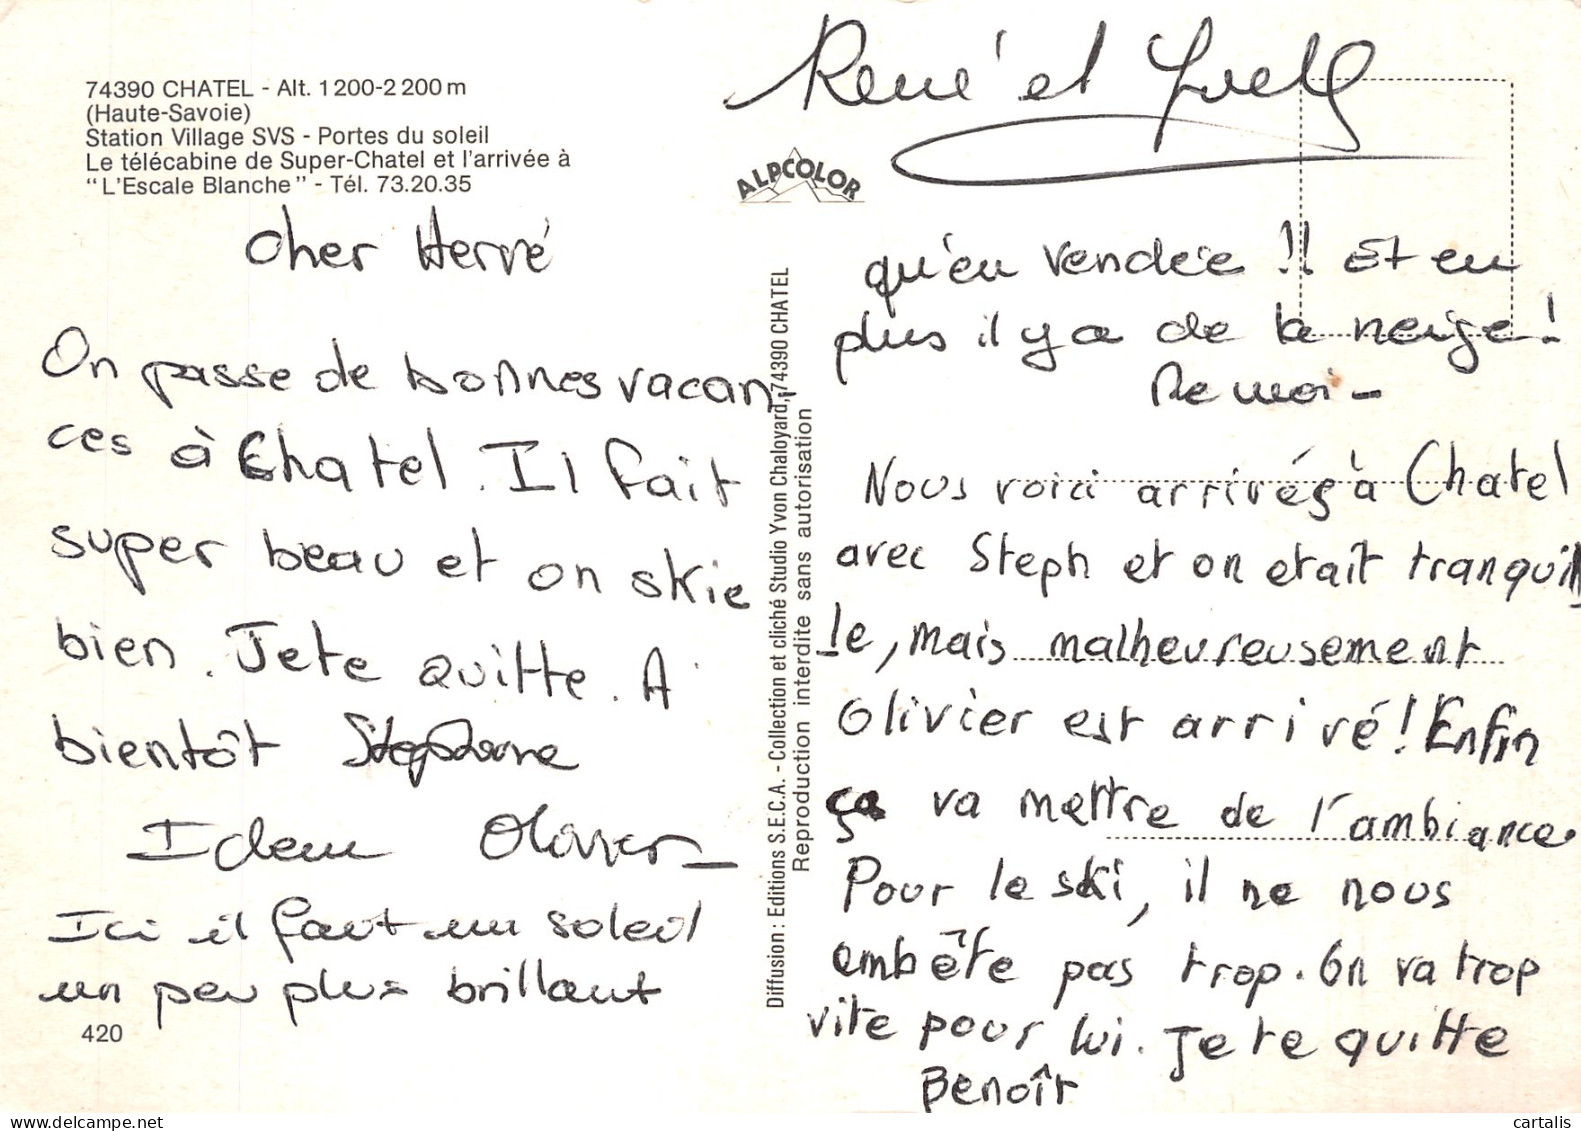 74390 CHATEL - Alt. 1200-2200 m
(Haute-Savoie)
Station Village SVS - Portes du soleil
Le télécabine de Super-Chatel et l'arrivée à
"L'Escale Blanche" - Tél. 73.20.35
Cher Hervé
On passe de bonnes vacan-
ces à Chatel. Il fait
super beau et on skie
bien. Je te quitte. A
bientôt Stephane
Idem Olivier
Ici il faut un soleil
un peu plus brillant
420
Diffusion : Editions S.E.C.A. - Collection et cliché Studio Yvon Chaloyard, 74390 CHATEL
Reproduction interdite sans autorisation
ALPCOLOR
René et
qu'en vendée !! Et en
plus il y a de la neige !
Re moi -
Nous voici arrivés à Chatel
avec Steph et on etait tranquil
le, mais malheureusement
Olivier est arrivé ! Enfin
ça va mettre de l'ambiance.
Pour le ski, il ne nous
embête pas trop. On va trop
vite pour lui. Je te quitte
Benoît
cartalis